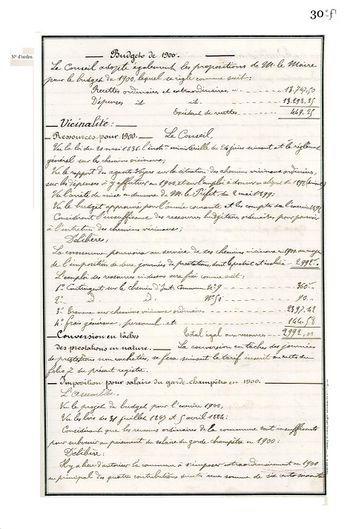 30
N° d'ordre.
Budgets de 1900.
Le Conseil adopte également les propositions de M. le Maire
pour le budget de 1900, lequel se règle comme suit:
Recettes ordinaires et extraordinaires
Dépenses
Excédent de recettes
Vicinalité:
Ressources pour 1900. Le Conseil
Vu la loi du 21 mai 1836 l'inst. ministérielle du 24 juin suivant et le règlement
général sur les chemins vicinaux;
Vu le rapport des agents Voyers sur la situation des chemins vicinaux,
sur les dépenses à y effectuer en 1900
Vu l'arrêté de mise en demeure de M. le Préfet du 2 mai 1899;
Vu le budget approuvé pour l'année courante et les comptes de l'année
Considérant l'insuffisance des ressources budgétaires ordinaires pour pourvoir
à l'entretien des chemins vicinaux;
Délibère:
La commune pourvoira au service de ses chemins vicinaux en 1900 au moyen
de l'imposition de deux journées de prestation dont le produit est évalué à 2,992.
L'emploi des ressources ci-dessus sera fixé comme suit:
1° Contingent sur le chemin d'Int. Commune N° 9 360.
2° 90.
3° Travaux aux chemins vicinaux ordinaires
4° frais généraux, personnel, etc
Total égal aux ressources 2,992.00
Conversion en tâches
des prestations en nature. La conversion en tâches des journées
de prestations non rachetées, se fera suivant le tarif inscrit au
folio 2 du présent registre.
Imposition pour salaire du garde champêtre en 1900.
L'assemblée,
Vu le projet de budget pour l'année 1900,
Vu les lois des 31 juillet 1867 et 5 avril 1884;
Considérant que les revenus ordinaires de la commune sont insuffisants
pour subvenir au paiement du salaire du garde champêtre en 1900:
Délibère:
Il y a lieu d'autoriser la commune à s'imposer extraordinairement en 1900
au principal des quatre contributions directes une somme de six cents